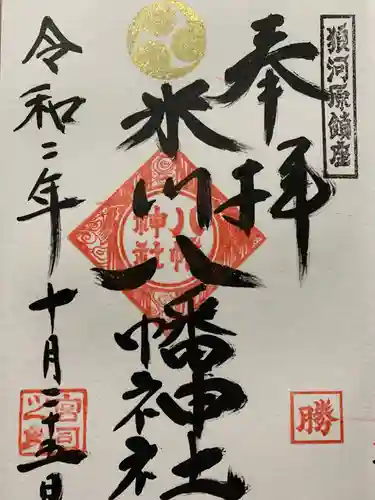 河原鎮座
奉拝
氷川八幡神社
八幡
神社
勝
令和二年十月二十五日
宮司
之印